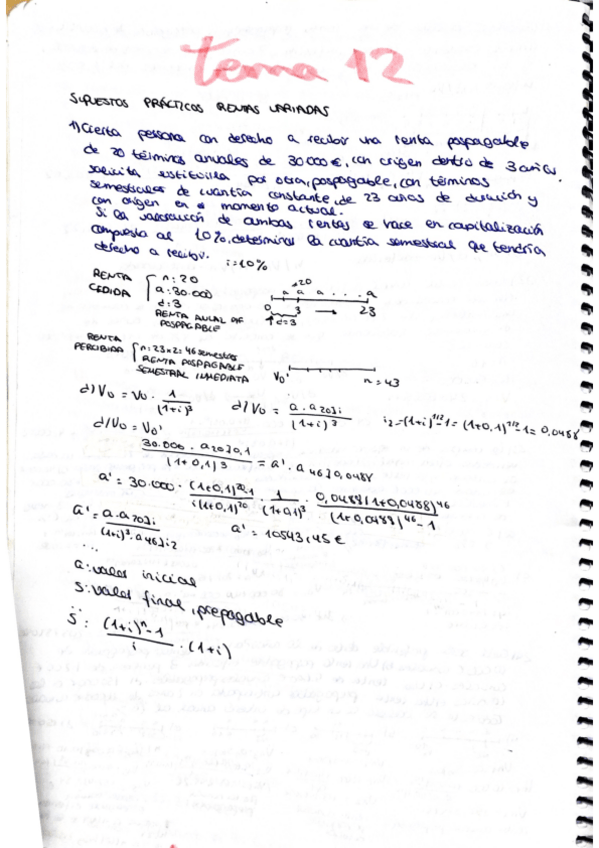 tema 12
SUPUESTOS PRÁCTICOS RENTAS VARIADAS
1) Cierta persona con derecho a recibir una renta pospagable
de 20 términos anuales de 30000 €, con origen dentro de 3 años,
solicita sustituirla por otra, pospagable, con términos
semestrales de cuantía constante, de 23 años de duración y
con origen en el momento actual.
Si la valoración de ambas rentas se hace en capitalización
compuesta al 10%, determinar la cuantía semestral que tendría
derecho a recibir. i=10%
RENTA CEDIDA { n: 20
a: 30.000
d: 3
RENTA ANUAL DF
POSPAGABLE
×20
a a a . . . a
0 3 → 23
d=3
RENTA PERCIBIDA { n: 23×2: 46 semestres
RENTA POSPAGABLE
SEMESTRAL INMEDIATA
V0' n=43
d/V0 = V0 · 1/(1+i)^3 d/V0 = a · a20⌉i/(1+i)^3 i2=(1+i)^1/2-1=(1+0,1)^1/2-1=0,0488
d/V0 = V0'
30.000 · a20⌉0,1/(1+0,1)^3 = a' · a46⌉0,0488
a' = 30.000 · (1+0,1)^20-1/i(1+0,1)^20 · 1/(1+0,1)^3 · 0,0488(1+0,0488)^46/(1+0,0488)^46-1
a' = a · a20⌉i/(1+i)^3 · a46⌉i2 a' = 10543,45 €
...
a: valor inicial
S: valor final, prepagable
S̈: (1+i)^n-1/i · (1+i)